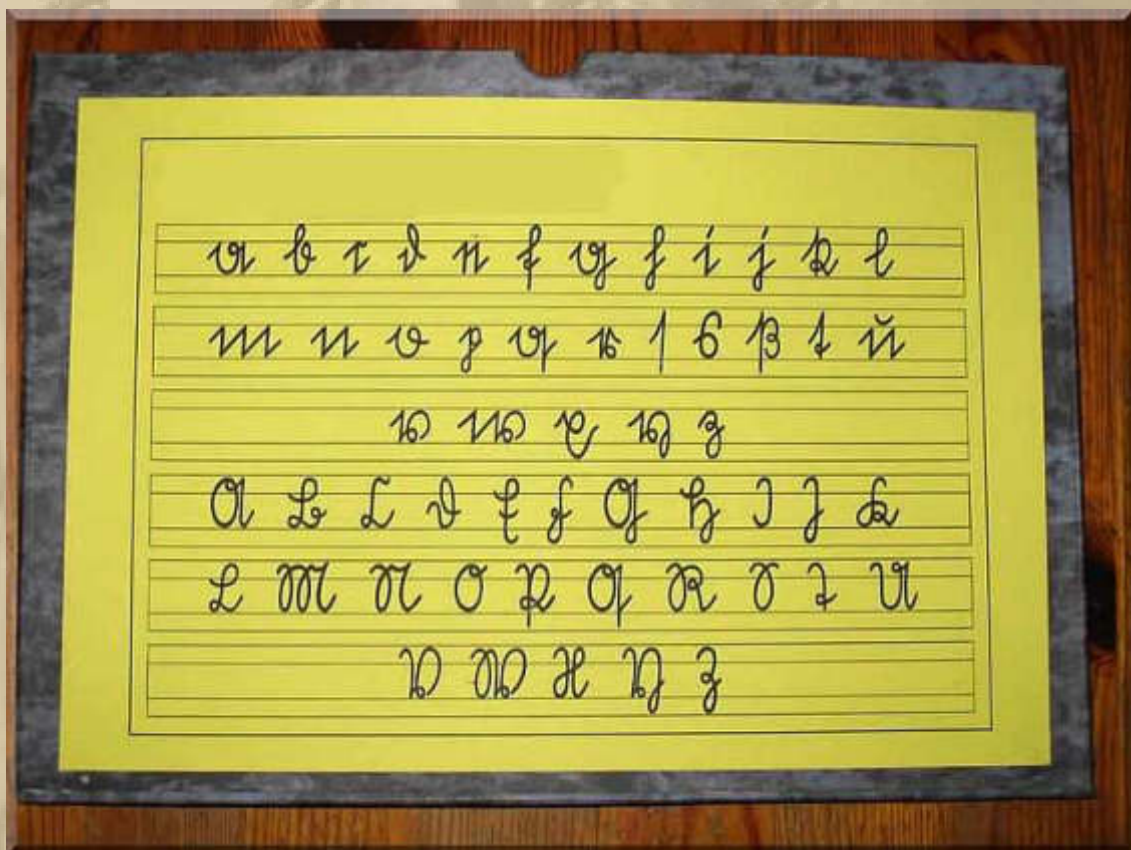 a b c d e f g h i j k l
m n o p q r ſ s ß t u
v w x y z
A B C D E F G H I J K
L M N O P Q R S T U
V W X Y Z